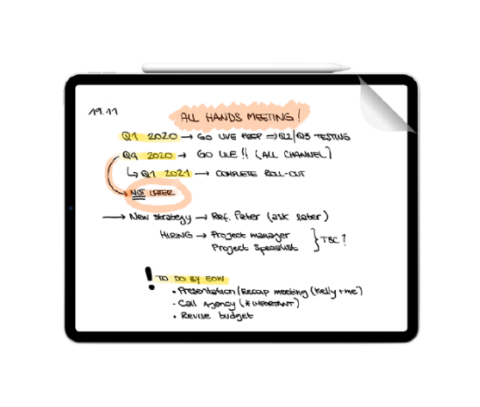 19.11
ALL HANDS MEETING!
Q1 2020 → GO LIVE PREP ⇒ Q2/Q3 TESTING
Q4 2020 → GO LIVE!! (ALL CHANNEL)
↳ Q1 2021 → COMPLETE ROLL-OUT
→ NOT LATER
→ New strategy → Ref. Peter (ask later)
HIRING → Project manager
Project Specialist } TBC?
! TO DO BY EOW
• Presentation/Recap meeting (Kelly + me)
• Call Agency (#IMPORTANT)
• Revise budget